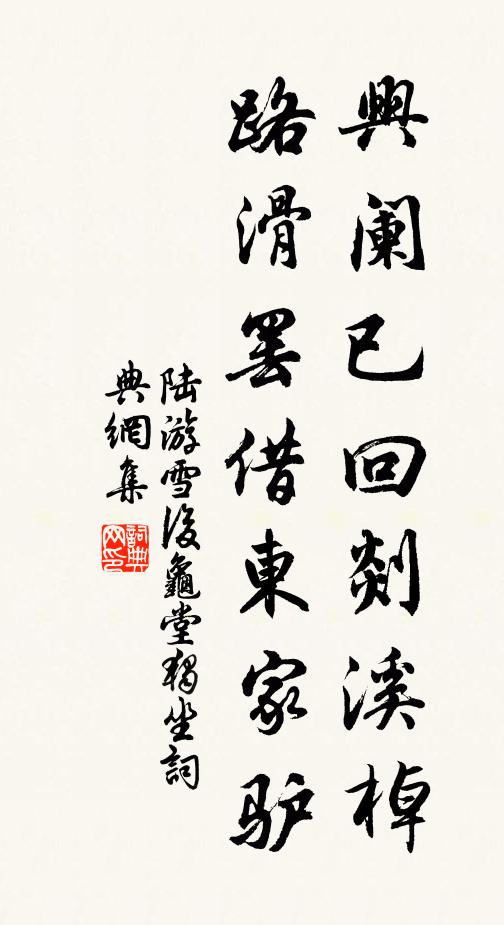 興阑已回剡溪棹
路滑罢借東家驴
陆游雪後龜堂獨坐詞
典網集
詞典网印